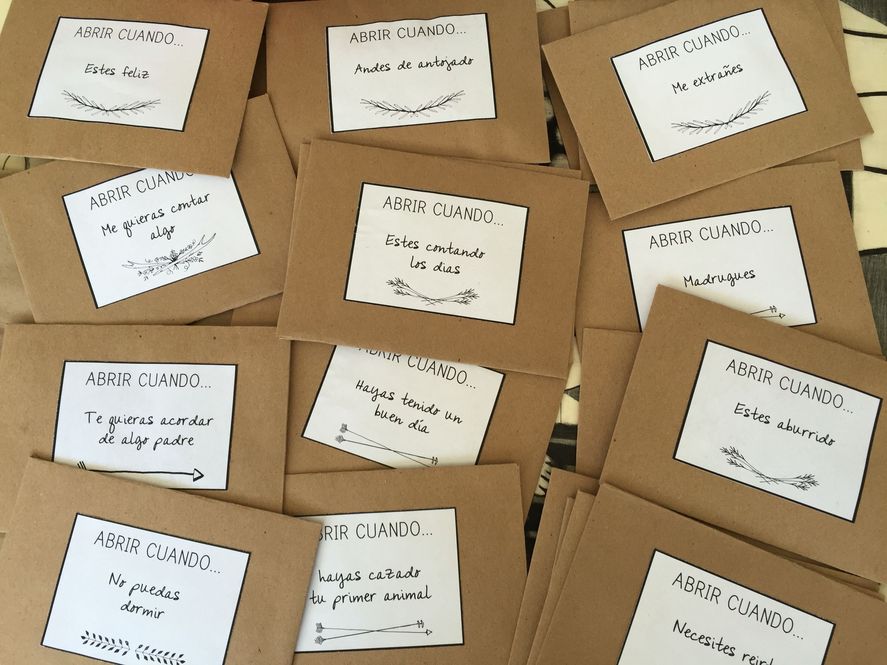 ABRIR CUANDO...
Estes feliz
ABRIR CUANDO...
Andes de antojado
ABRIR CUANDO...
Me extrañes
ABRIR CUANDO
Me quieras contar
algo
ABRIR CUANDO...
Estes contando
los dias
ABRIR CUANDO...
Madrugues
ABRIR CUANDO...
Te quieras acordar
de algo padre
ABRIR CUANDO...
Hayas tenido un
buen día
ABRIR CUANDO...
Estes aburrido
ABRIR CUANDO...
No puedas
dormir
BRIR CUANDO...
hayas cazado
tu primer animal
ABRIR CUANDO...
Necesites reir!